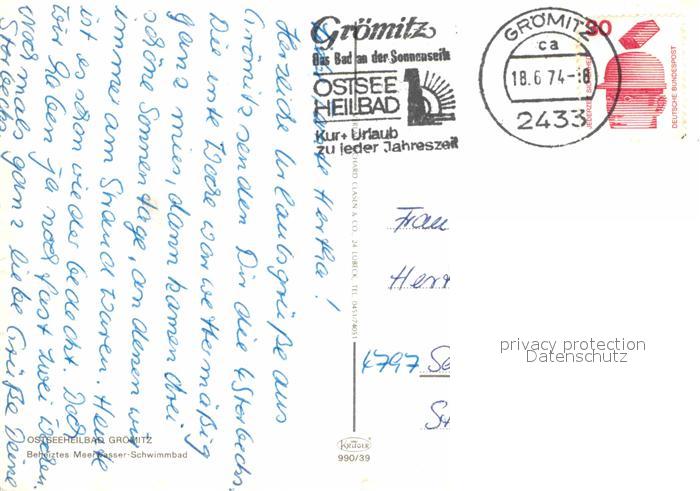 Grömitz
Das Bad an der Sonnenseite
OSTSEE
HEILBAD
Kur + Urlaub
zu jeder Jahreszeit
GRÖMITZ
ca
18.6.74-18
2433
30
JEDERZEIT SICHERHEIT
DEUTSCHE BUNDESPOST
Hertha!
Herzliche Urlaubsgrüße aus
Grömitz senden Dir die 4 Sterbecks.
Die erste Woche war wettermäßig
ganz mies, dann kamen drei
schöne Sonnentage, an denen wir
immer am Strand waren. Heute
ist es schon wieder bedeckt. Doch
wir haben ja noch fast zwei Wochen.
Nochmals ganz liebe Grüße Deine
Sterbecks
Frau
Herr
4797 Sc
St
privacy protection
Datenschutz
OSTSEEHEILBAD GRÖMITZ
Beheiztes Meerwasser-Schwimmbad
KRÜGER
990/39
CLASEN & CO., 24 LÜBECK, TEL. 0451/74651